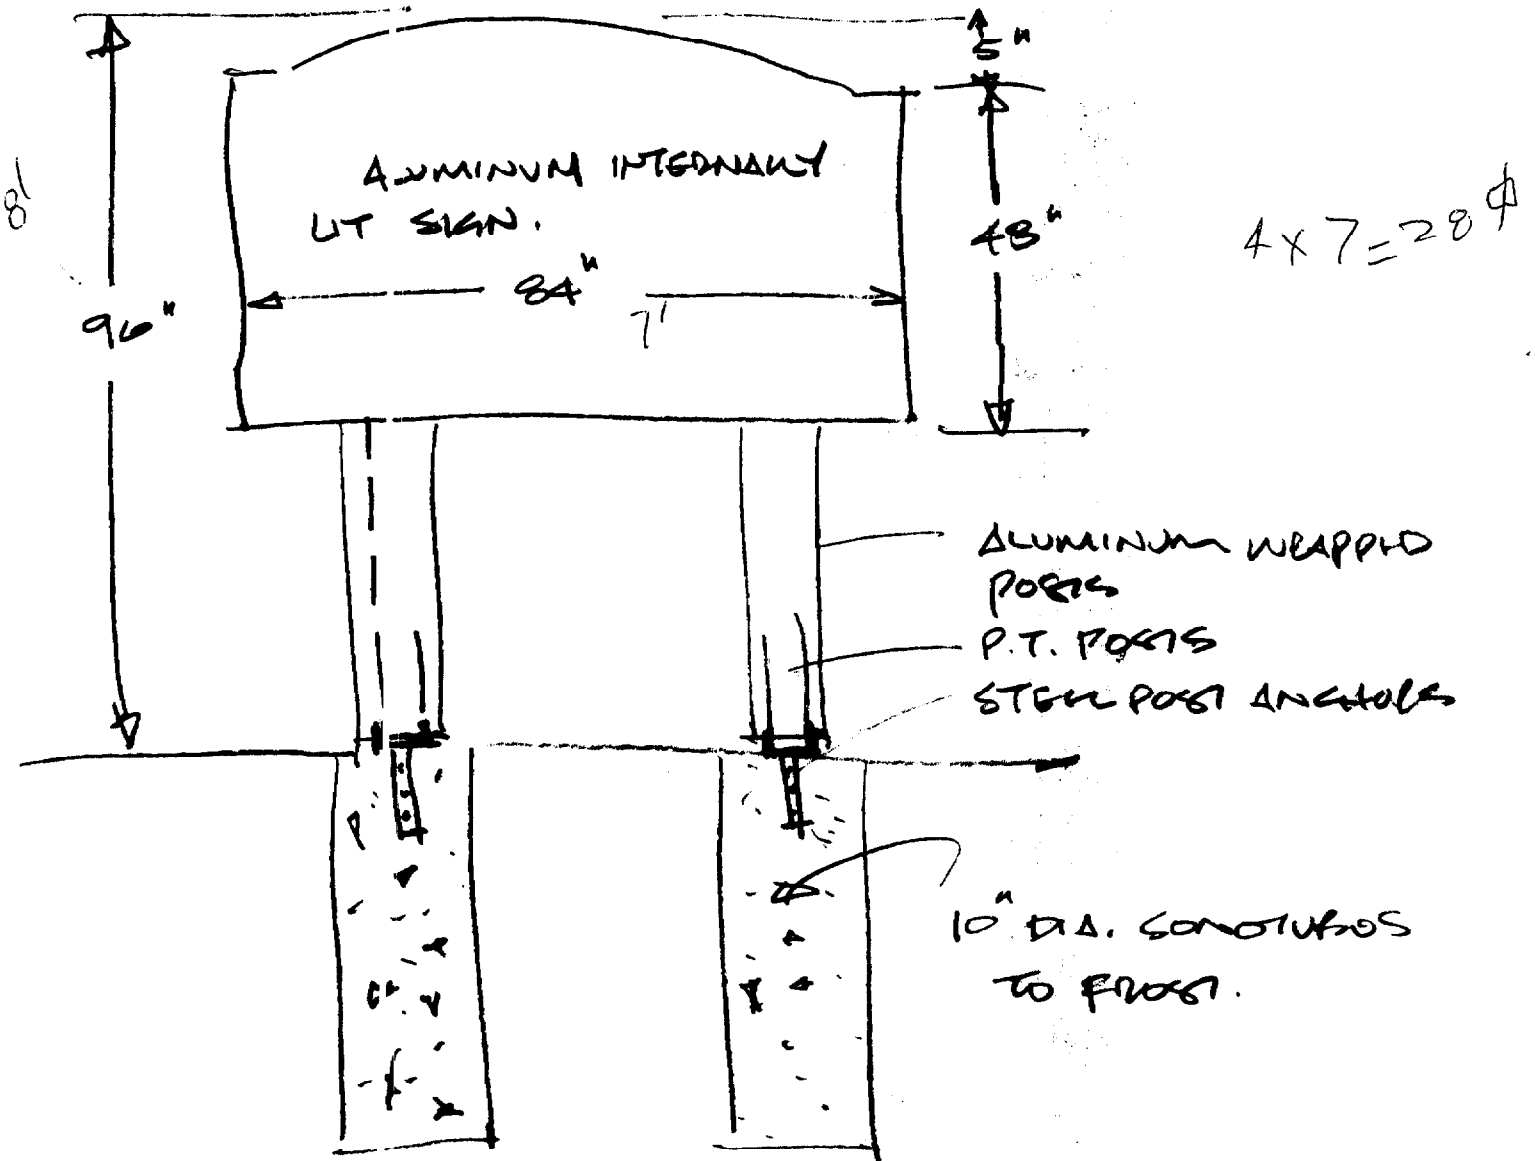 5"
ALUMINUM INTERNALLY
LIT SIGN.
8'
48"
4 x 7 = 28 ⏀
84"
7'
96"
ALUMINUM WRAPPED
POSTS
P.T. POSTS
STEEL POST ANCHORS
10" DIA. SONOTUBES
TO FROST.